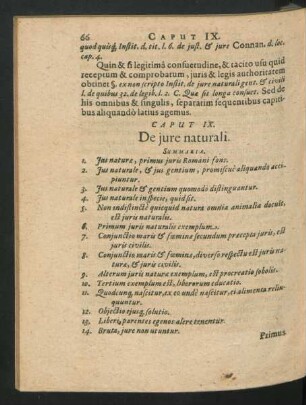 66 CAPUT IX
quod quisq́; Instit. d. tit. l. 6. de just. & jure Connan. d. loc.
cap. 4.
Quin & si legitimâ consuetudine, & tacito usu quid
receptum & comprobatum, juris & legis authoritatem
obtinet §. ex non scripto Instit. de jure naturali gent. & civili
l. de quibus 32. de legib. l. 2. C. Quæ sit longa consuet. Sed de
his omnibus & singulis, separatim sequentibus capiti-
bus aliquandò latius agemus.
CAPUT IX.
De jure naturali.
SUMMARIA.
1. Jus naturæ, primus juris Romani fons.
2. Jus naturale, & jus gentium, promiscuè aliquando acci-
piuntur.
3. Jus naturale & gentium quomodò distinguantur.
4. Jus naturale in specie, quid sit.
5. Non indistinctè quicquid natura omnia animalia docuit,
est juris naturalis.
6. Primum juris naturalis exemplum.
7. Conjunctio maris & fæminæ secundum præcepta juris, est
juris civilis.
8. Conjunctio maris & fæminæ, diverso respectu est juris na-
turæ, & juris civilis.
9. Alterum juris naturæ exemplum, est procreatio sobolis.
10. Tertium exemplum est, liberorum educatio.
11. Quodcunq́; nascitur, ex eo unde nascitur, ei alimenta relin-
quuntur.
12. Objectio ejusq́; solutio.
13. Liberi, parentes egenos alere tenentur.
14. Bruta, jure non utuntur.
Primus